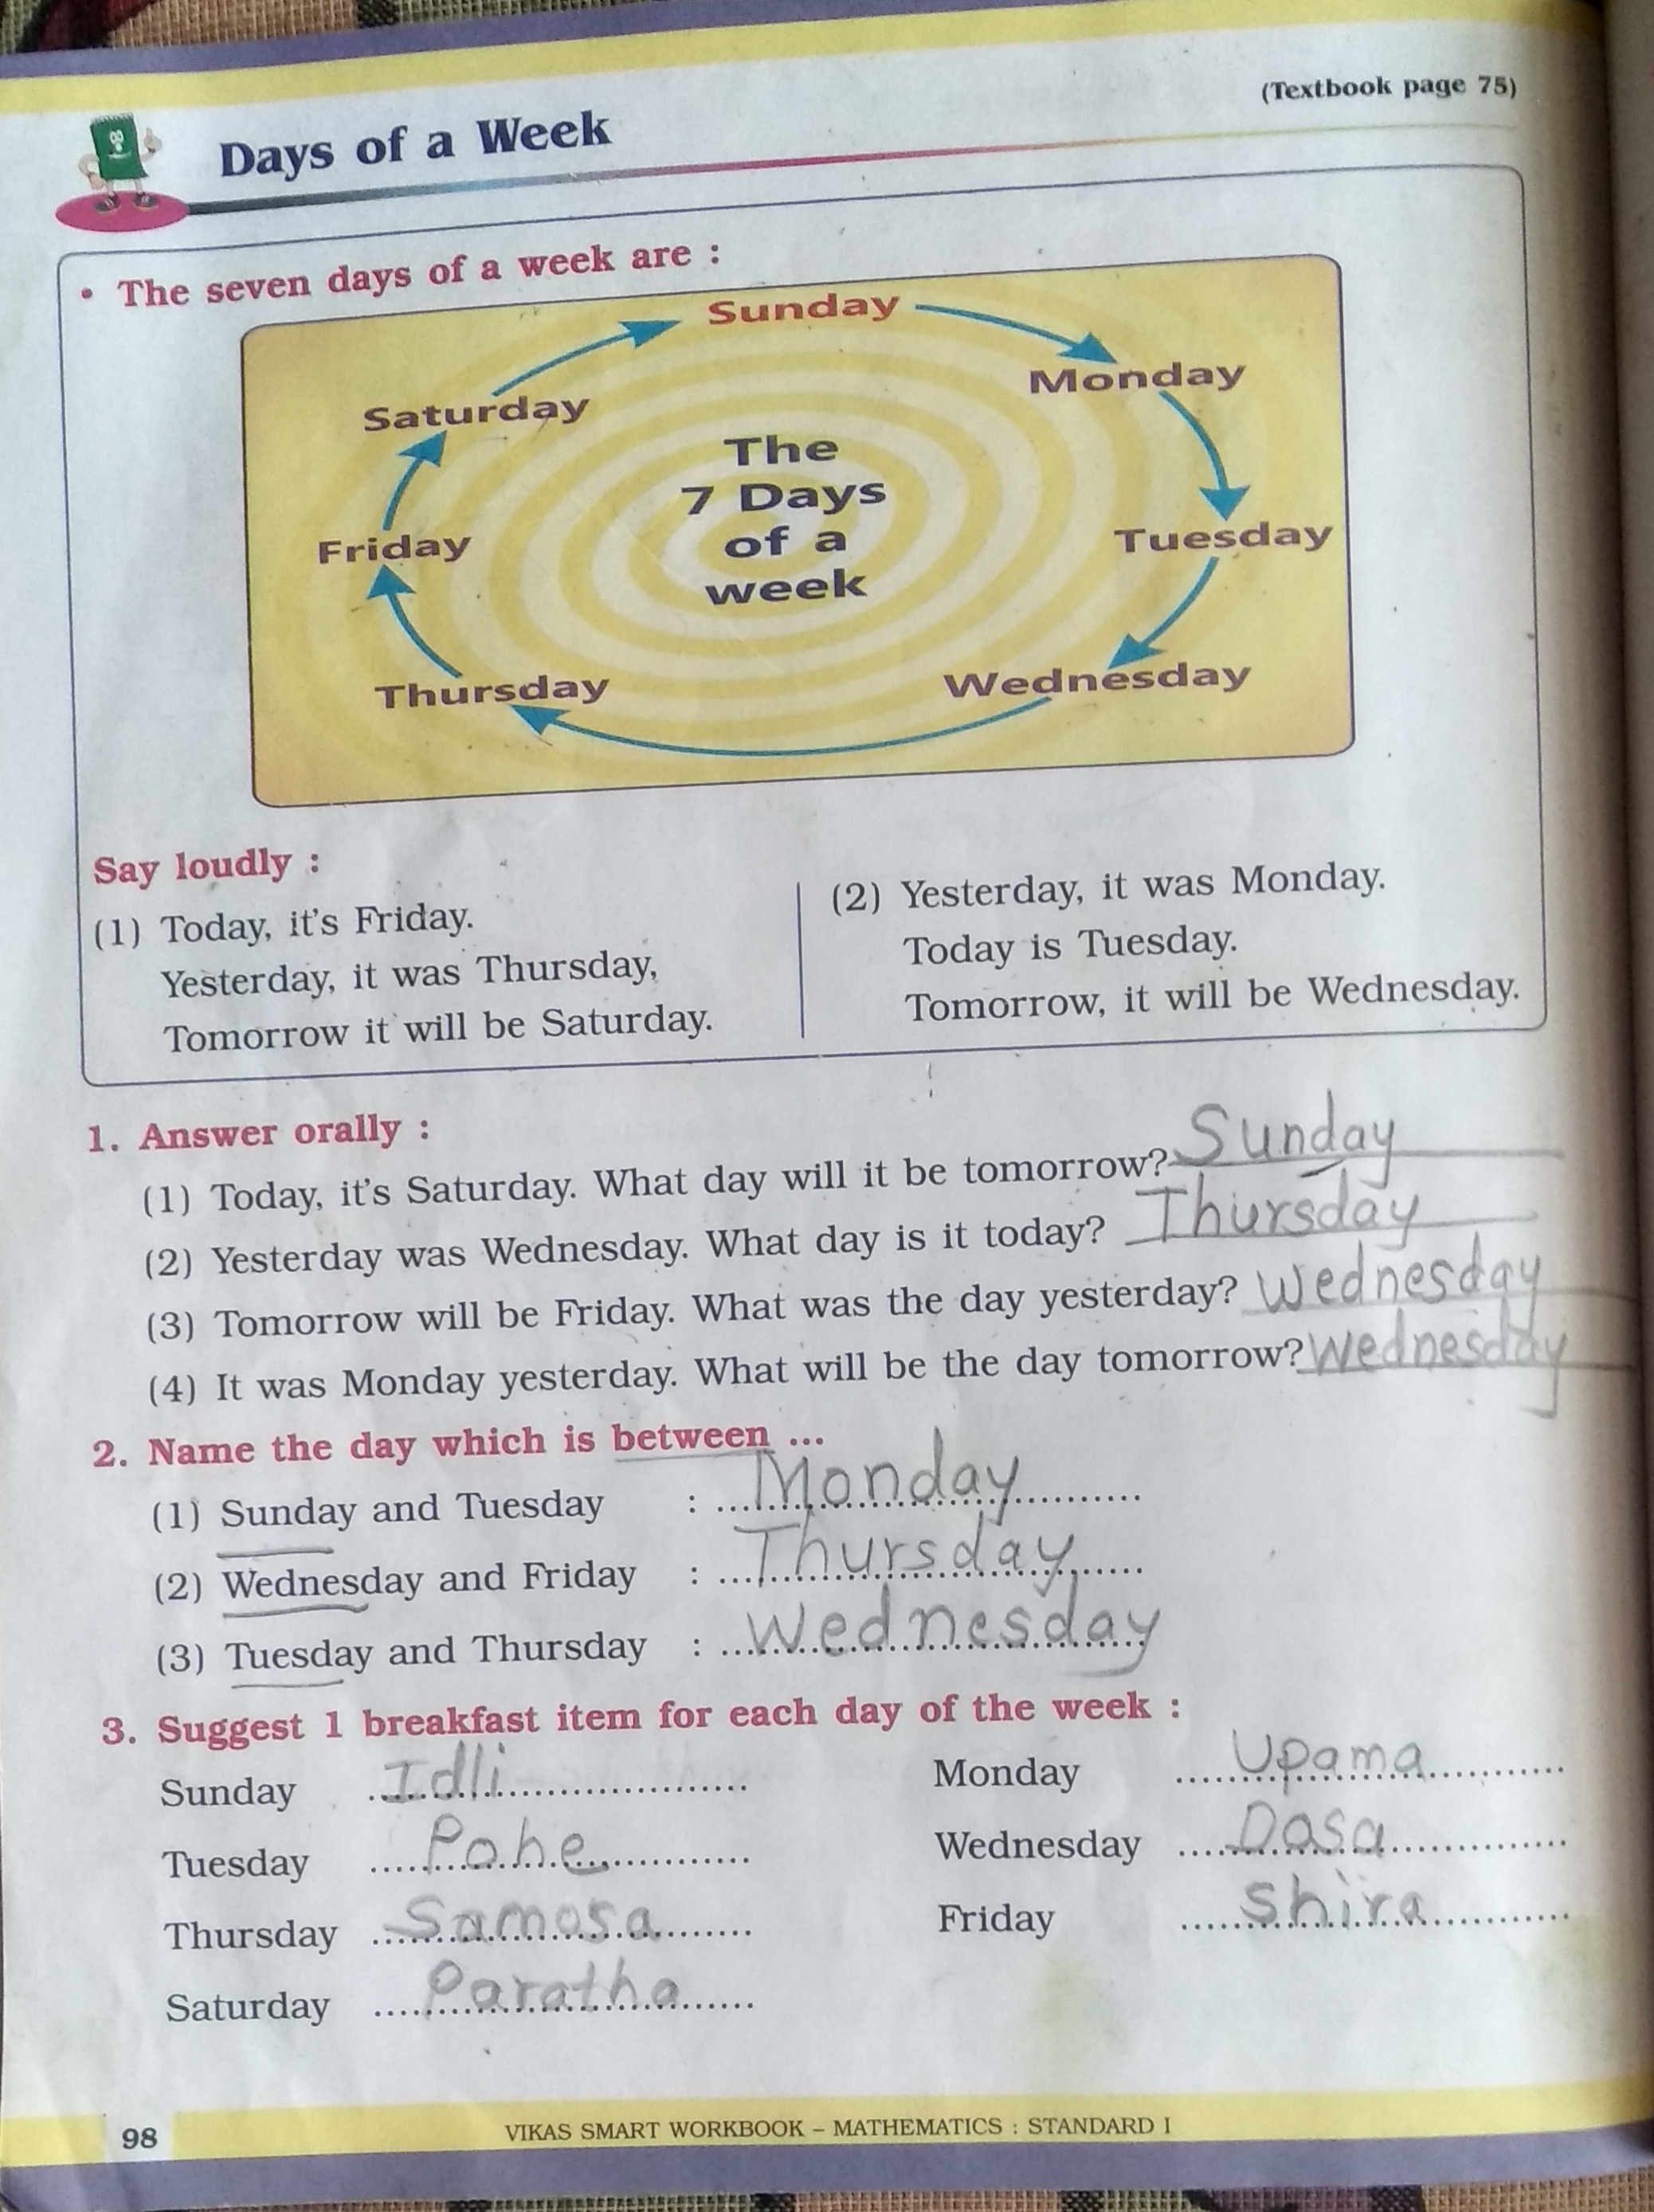 (Textbook page 75)
Days of a Week
• The seven days of a week are :
Sunday
Monday
Saturday
The
7 Days
of a
week
Friday
Tuesday
Thursday
Wednesday
Say loudly :
(1) Today, it's Friday.
Yesterday, it was Thursday,
Tomorrow it will be Saturday.
(2) Yesterday, it was Monday.
Today is Tuesday.
Tomorrow, it will be Wednesday.
1. Answer orally :
(1) Today, it's Saturday. What day will it be tomorrow? Sunday
(2) Yesterday was Wednesday. What day is it today? Thursday
(3) Tomorrow will be Friday. What was the day yesterday? Wednesday
(4) It was Monday yesterday. What will be the day tomorrow? Wednesday
2. Name the day which is between ...
(1) Sunday and Tuesday : Monday
(2) Wednesday and Friday : Thursday
(3) Tuesday and Thursday : Wednesday
3. Suggest 1 breakfast item for each day of the week :
Sunday Idli Monday Upama
Tuesday Pohe Wednesday Dosa
Thursday Samosa Friday Shira
Saturday Paratha
98 VIKAS SMART WORKBOOK – MATHEMATICS : STANDARD I